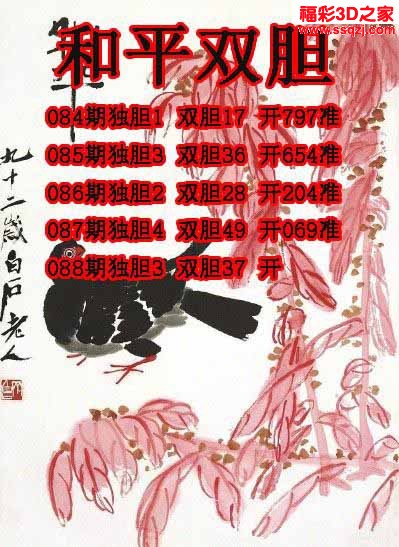 福彩3D之家
www.ssqzj.com
和平双胆
084期独胆1 双胆17 开797准
085期独胆3 双胆36 开654准
086期独胆2 双胆28 开204准
087期独胆4 双胆49 开069准
088期独胆3 双胆37 开
九十二岁白石老人